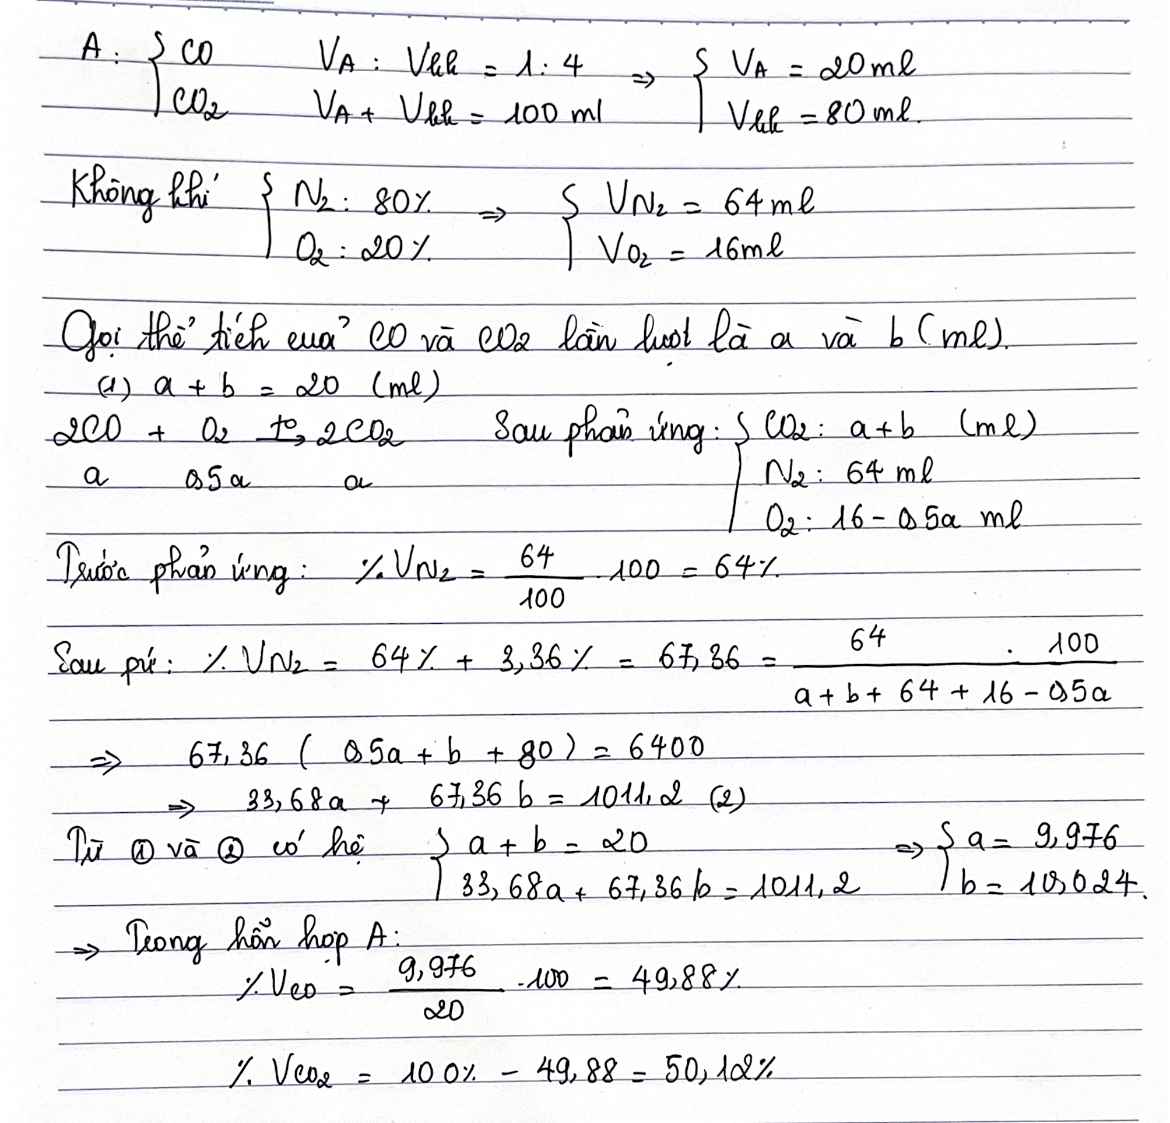 A: { CO V_A : Vkk = 1 : 4 => { V_A = 20 ml
CO2 V_A + Vkk = 100 ml Vkk = 80 ml.
Không khí { N2 : 80% => { V N2 = 64 ml
O2 : 20% V O2 = 16 ml
Gọi thể tích của CO và CO2 lần lượt là a và b (ml).
(1) a + b = 20 (ml)
2CO + O2 t°→ 2CO2 Sau phản ứng: { CO2 : a+b (ml)
a 0,5a a N2 : 64 ml
O2 : 16 - 0,5a ml
Trước phản ứng: % V N2 = 64/100 . 100 = 64%
Sau pứ: % V N2 = 64% + 3,36% = 67,36 = 64/(a + b + 64 + 16 - 0,5a) . 100
=> 67,36 ( 0,5a + b + 80 ) = 6400
=> 33,68a + 67,36 b = 1011,2 (2)
Từ ① và ② có hệ { a + b = 20 => { a = 9,976
33,68a + 67,36b = 1011,2 b = 10,024.
=> Trong hỗn hợp A:
% V CO = 9,976/20 . 100 = 49,88%
% V CO2 = 100% - 49,88 = 50,12%